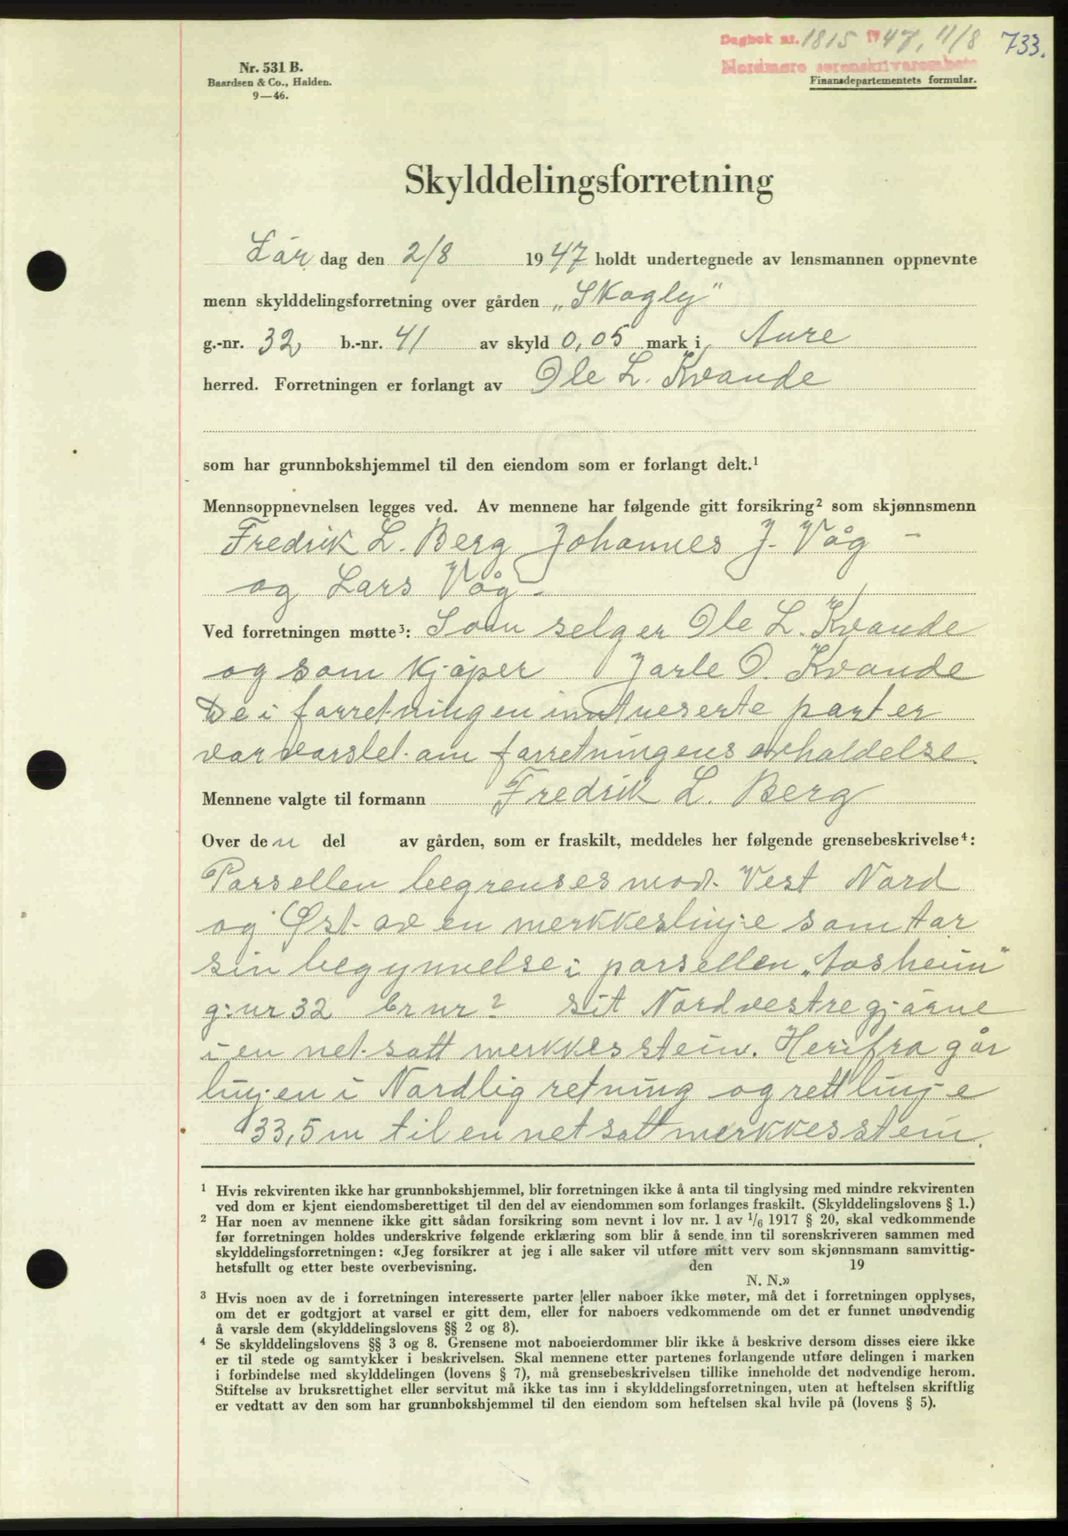 Dagbok nr. 1815 1947, 11/8 733.
Nordmøre sorenskriverembete
Nr. 531 B.
Baardsen & Co., Halden.
9—46.
Finansdepartementets formular.
Skylddelingsforretning
Lør dag den 2/8 1947 holdt undertegnede av lensmannen oppnevnte
menn skylddelingsforretning over gården „Skogly"
g.-nr. 32 b.-nr. 41 av skyld 0,05 mark i Aure
herred. Forretningen er forlangt av Ole L. Kvande
som har grunnbokshjemmel til den eiendom som er forlangt delt.¹
Mennsoppnevnelsen legges ved. Av mennene har følgende gitt forsikring² som skjønnsmenn
Fredrik L. Berg Johannes J. Våg -
og Lars Våg -
Ved forretningen møtte³: Som selger Ole L. Kvande
og som kjøper Jarle O. Kvande
De i forretningen inntreserte parter
var varslet om forretningens avholdelse.
Mennene valgte til formann Fredrik L. Berg
Over den del av gården, som er fraskilt, meddeles her følgende grensebeskrivelse⁴:
Parsellen begrenses mod. Vest Nord
og Øst. av en merkkeslinje som tar
sin begynnelse i parsellen „Aasheim"
g:nr 32 br nr ? sit Nordvestre gjørne
i en net.satt merkkesstein. Herifra går
linjen i Nordlig retning og rett linje
33,5 m til en netsatt merkkesstein.
¹ Hvis rekvirenten ikke har grunnbokshjemmel, blir forretningen ikke å anta til tinglysing med mindre rekvirenten
ved dom er kjent eiendomsberettiget til den del av eiendommen som forlanges fraskilt. (Skylddelingslovens § 1.)
² Har noen av mennene ikke gitt sådan forsikring som nevnt i lov nr. 1 av 1/6 1917 § 20, skal vedkommende
før forretningen holdes underskrive følgende erklæring som blir å sende inn til sorenskriveren sammen med
skylddelingsforretningen: «Jeg forsikrer at jeg i alle saker vil utføre mitt verv som skjønnsmann samvittig-
hetsfullt og etter beste overbevisning. den 19
N. N.»
³ Hvis noen av de i forretningen interesserte parter (eller naboer ikke møter, må det i forretningen opplyses,
om det er godtgjort at varsel er gitt dem, eller for naboers vedkommende om det er funnet unødvendig
å varsle dem (skylddelingslovens §§ 2 og 8).
⁴ Se skylddelingslovens §§ 3 og 8. Grensene mot naboeierdommer blir ikke å beskrive dersom disses eiere ikke
er til stede og samtykker i beskrivelsen. Skal mennene etter partenes forlangende utføre delingen i marken
i forbindelse med skylddelingen (lovens § 7), må grensebeskrivelsen tillike inneholde det nødvendige herom.
Stiftelse av bruksrettighet eller servitut må ikke tas inn i skylddelingsforretningen, uten at heftelsen skriftlig
er vedtatt av den som har grunnbokshjemmel til den eiendom som heftelsen skal hvile på (lovens § 5).